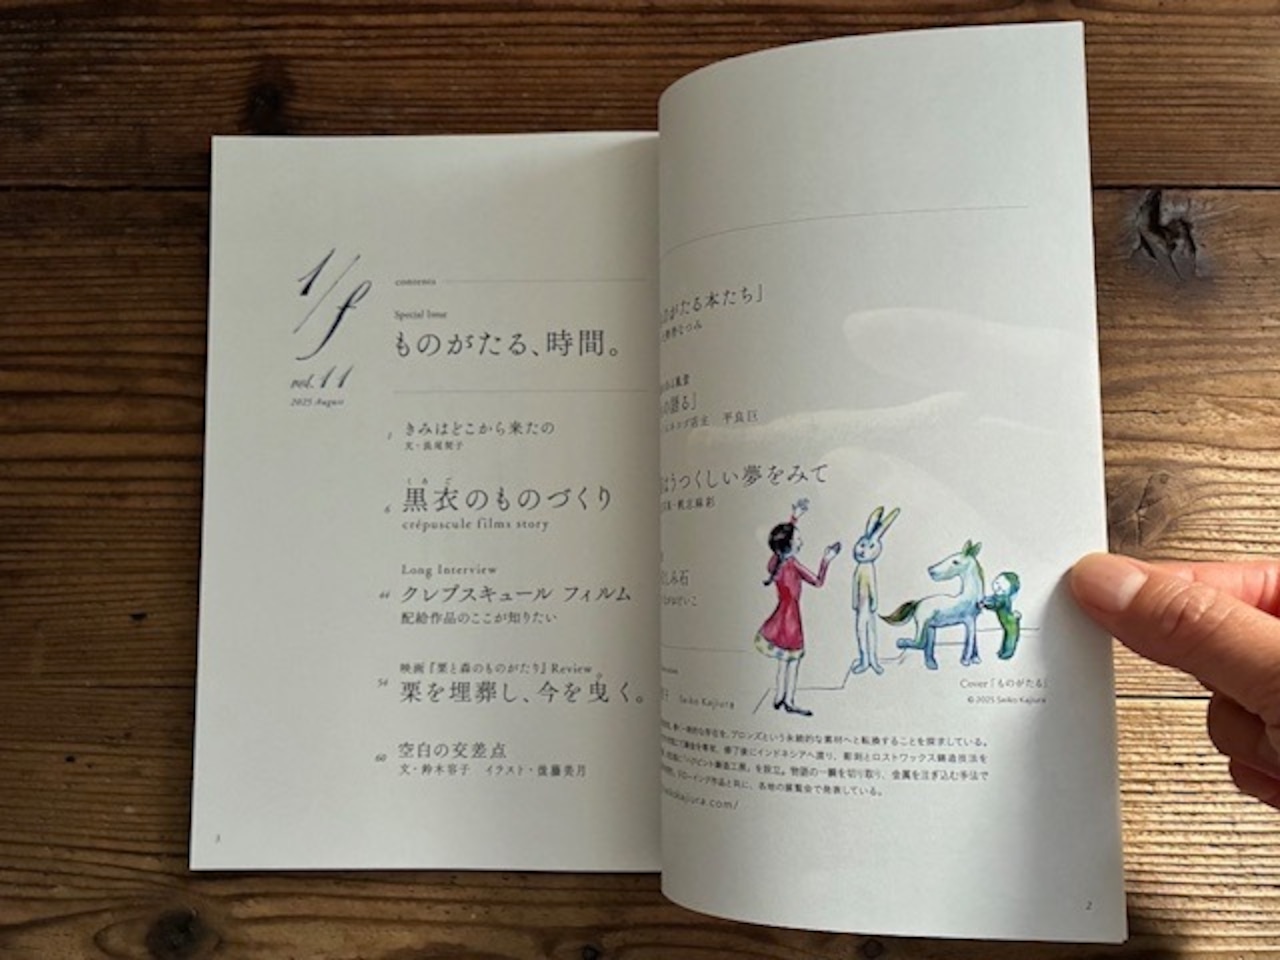 1/f
vol.11
2025 August
contents
Special Issue
ものがたる、時間。
きみはどこから来たの
くろご
6 黒衣のものづくり
crépuscule films story
Long Interview
44 クレプスキュール フィルム
配給作品のここが知りたい
映画『栗と森のものがたり』Review
54 栗を埋葬し、今を曳く。
60 空白の交差点
文・鈴木容子 イラスト・後藤美月
がたる本たち」
の語る」
店主 平良巨
はうつくしい夢をみて
しみ石
Seiko Kajiura
Cover「ものがたる」
© 2025 Seiko Kajiura
ブロンズという永続的な素材へと転換することを探求している。
修了後にインドネシアへ渡り、彫刻とロストワックス鋳造技法を
を設立。物語の一瞬を切り取り、金属を注ぎ込む手法で
ドローイング作品と共に、各地の展覧会で発表している。
kajiura.com/
2